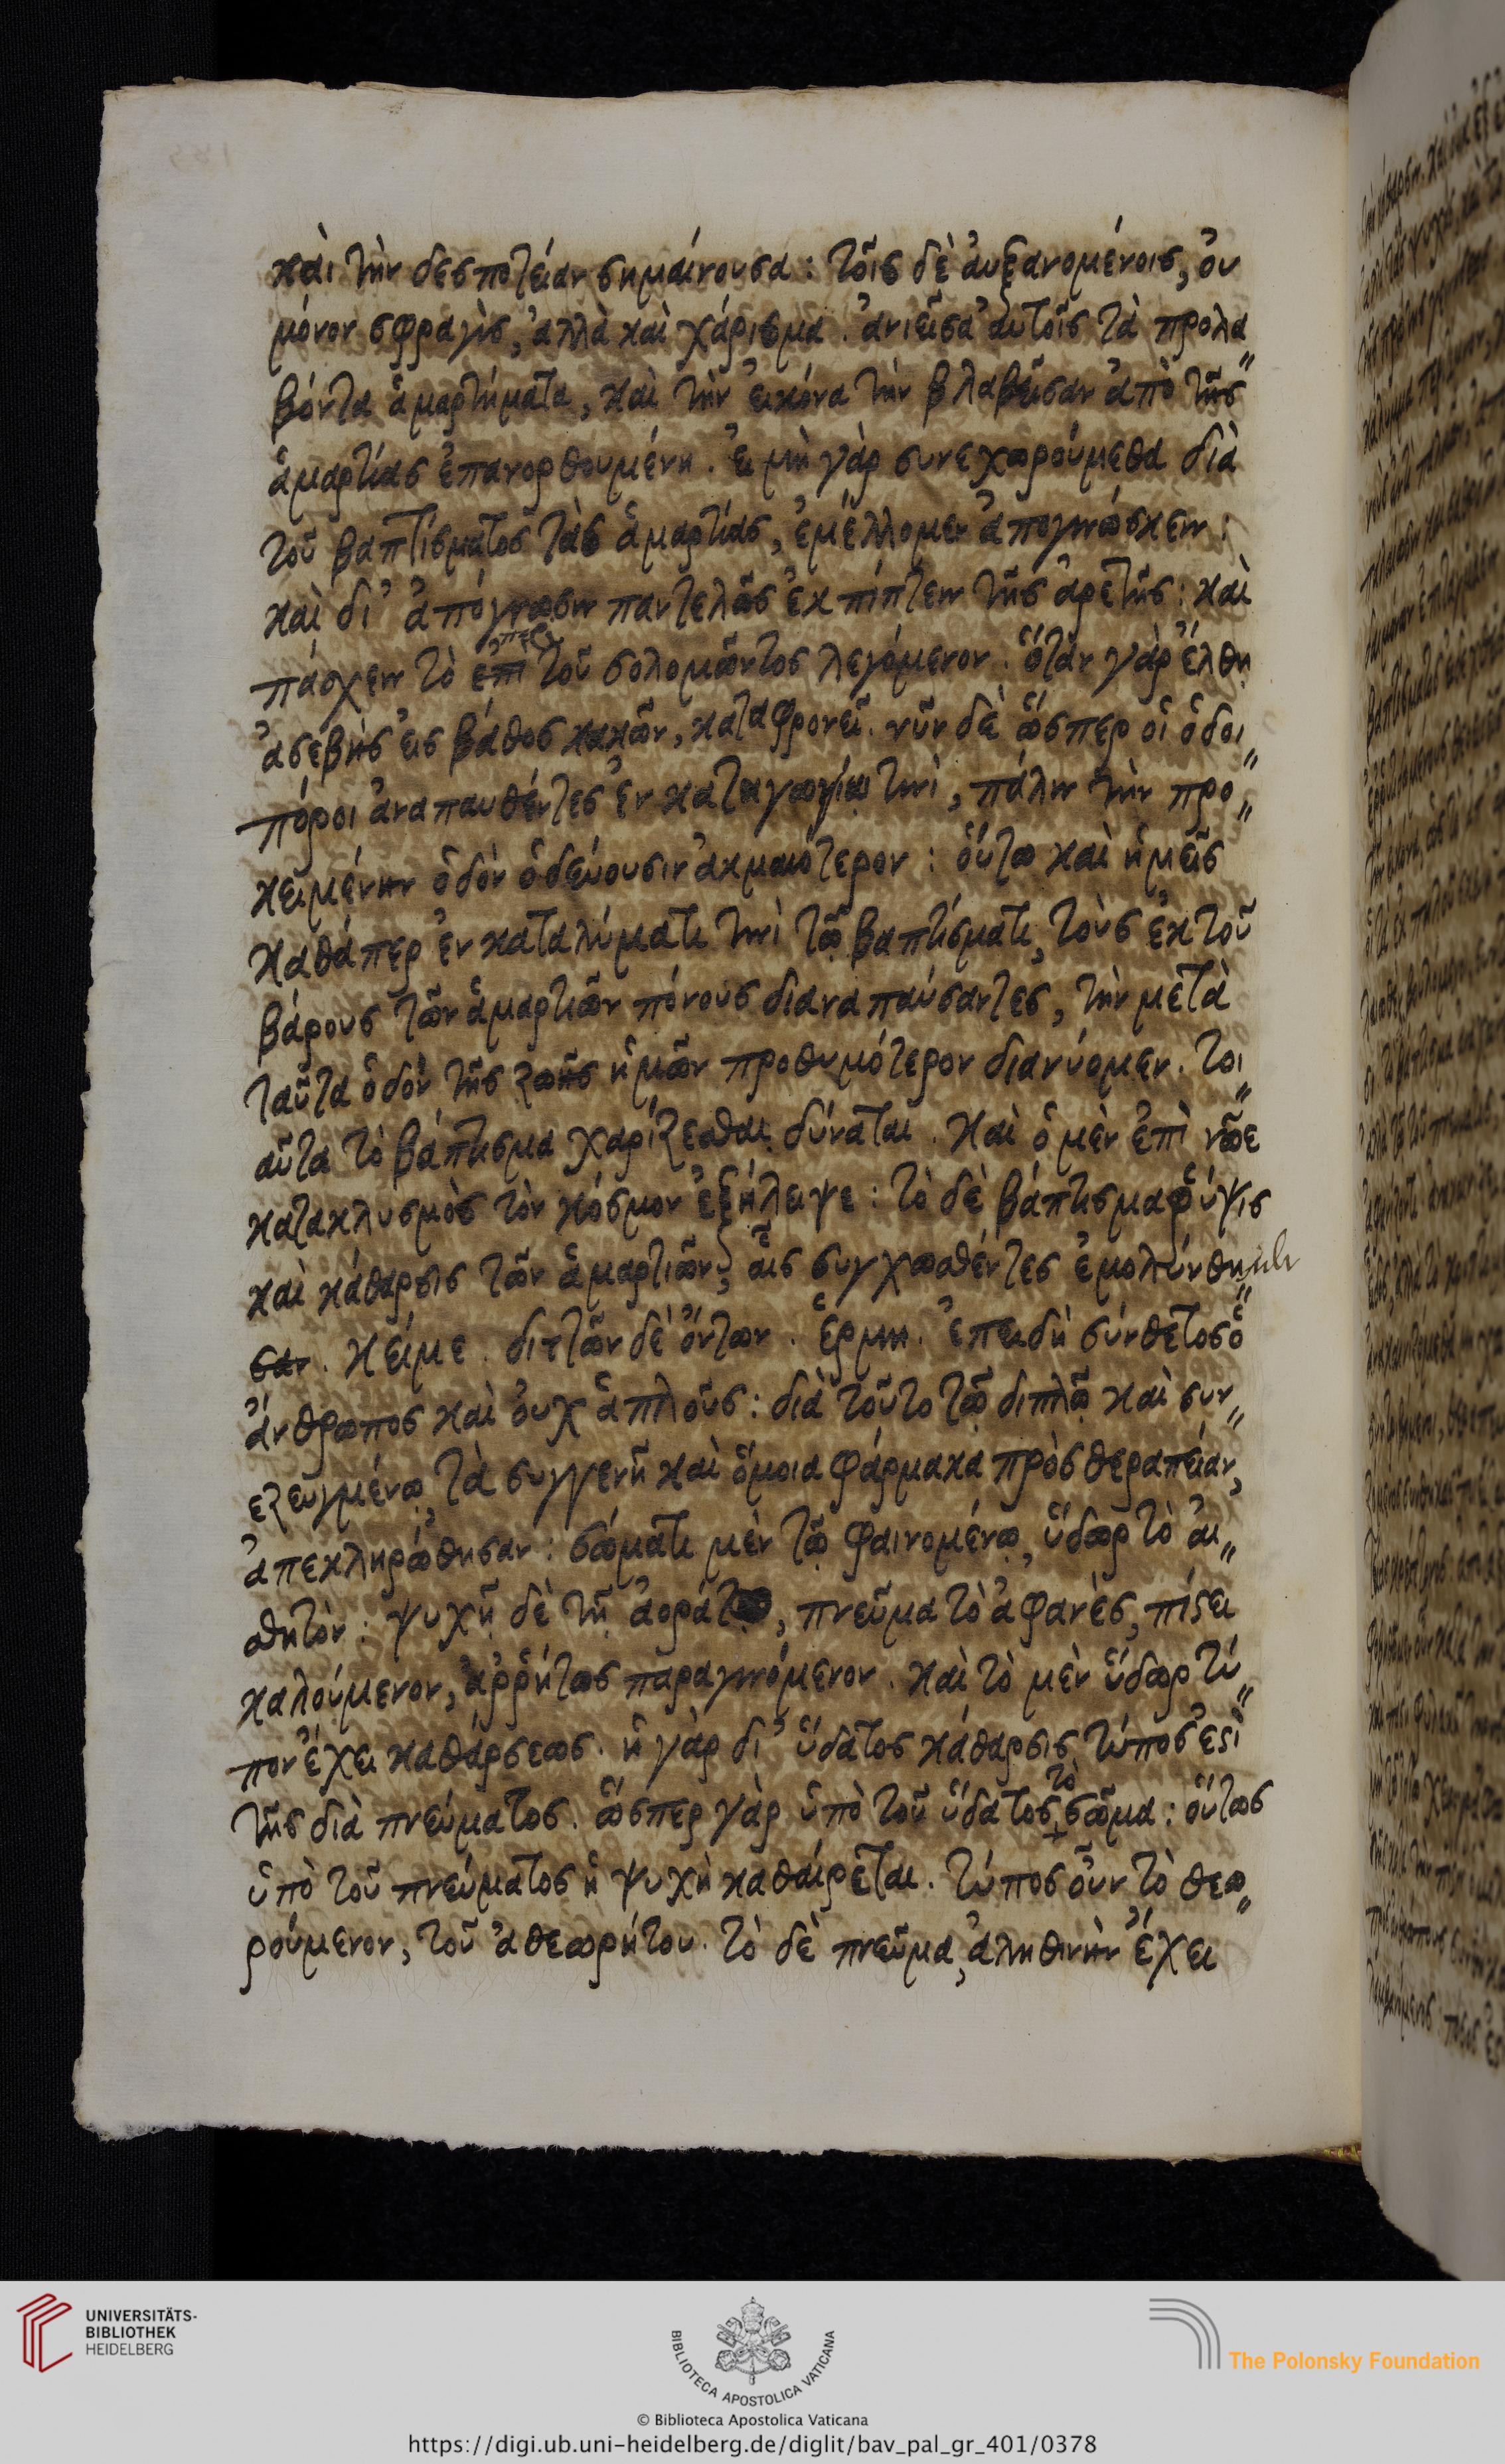 καὶ τὴν δεσποτείαν σημαίνουσα: τοῖς δὲ ἀυξανομένοις, ὀυ
μόνον σφραγὶς, ἀλλὰ καὶ χάρισμα. ἀνιεῖσα ἀυτοῖς τὰ προλα„
βόντα ἁμαρτήματα, καὶ τὴν ἐικόνα τὴν βλαβεῖσαν ἀπὸ τῆς
ἁμαρτίας ἐπανορθουμένη. ἐι μὴ γὰρ συνεχωρούμεθα διὰ
τοῦ βαπτίσματος τὰς ἁμαρτίας, ἐμέλλομεν ἀπογινώσκειν:
καὶ δι' ἀπόγνωσιν παντελῶς ἐκπίπτειν τῆς ἀρετῆς: καὶ
πάσχειν τὸ ἐπὶ τοῦ σολομῶντος λεγόμενον. ὅταν γὰρ ἔλθη
ἀσεβὴς ἐις βάθος κακῶν, καταφρονεῖ. νῦν δὲ ὥσπερ οἱ ὁδοι„
πόροι ἀναπαυθέντες ἐν καταγωγίω τινὶ, πάλιν τὴν προ„
κειμένην ὁδὸν ὁδεύουσιν ἀκμαιότερον: ὅυτω καὶ ἡμεῖς
καθάπερ ἐν καταλύματι τινὶ τῶ βαπτίσματι, τοὺς ἐκ τοῦ
βάρους τῶν ἁμαρτιῶν πόνους διαναπαύσαντες, τὴν μετὰ
ταῦτα ὁδὸν τῆς ζωῆς ἡμῶν προθυμότερον διανύομεν. τοι„
αῦτα τὸ βάπτισμα χαρίζεσθαι δύναται. καὶ ὁ μὲν ἐπὶ νῶε
κατακλυσμὸς τὸν κόσμον ἐξήλειψε: τὸ δὲ βάπτισμα ῥύψις
καὶ κάθαρσις τῶν ἁμαρτιῶν, αἷς συγχωσθέντες ἐμολύνθη„μεν
σαν. κείμε. διττῶν δὲ ὄντων. ἑρμη. ἐπειδὴ σύνθετος ὁ
ἄνθρωπος καὶ ὀυχ ἁπλοῦς: διὰ τοῦτο τῶ διπλῶ καὶ συν„
εζευγμένω, τὰ συγγενῆ καὶ ὅμοια φάρμακα πρὸς θεραπείαν,
ἀπεκληρώθησαν: σώματι μὲν τῶ φαινομένω, ὕδωρ τὸ ἀι„
σθητὸν: ψυχῆ δὲ τῆ ἀοράτω, πνεῦμα τὸ ἀφανὲς, πίστει
καλούμενον, ἀῤῥήτως παραγινόμενον. καὶ τὸ μὲν ὕδωρ τύ„
πον ἔχει καθάρσεως. ἡ γὰρ δι' ὕδατος κάθαρσις, τύπος ἐστὶ
τῆς διὰ πνεύματος. ὥσπερ γὰρ ὑπὸ τοῦ ὕδατος τὸ σῶμα: ὅυτως
ὑπὸ τοῦ πνεύματος ἡ ψυχὴ καθαίρεται. τύπος ὀῦν τὸ θεω„
ρούμενον, τοῦ ἀθεωρήτου. τὸ δὲ πνεῦμα, ἀληθινὴν ἔχει
UNIVERSITÄTS-
BIBLIOTHEK
HEIDELBERG
BIBLIOTECA APOSTOLICA VATICANA
The Polonsky Foundation
© Biblioteca Apostolica Vaticana
https://digi.ub.uni-heidelberg.de/diglit/bav_pal_gr_401/0378